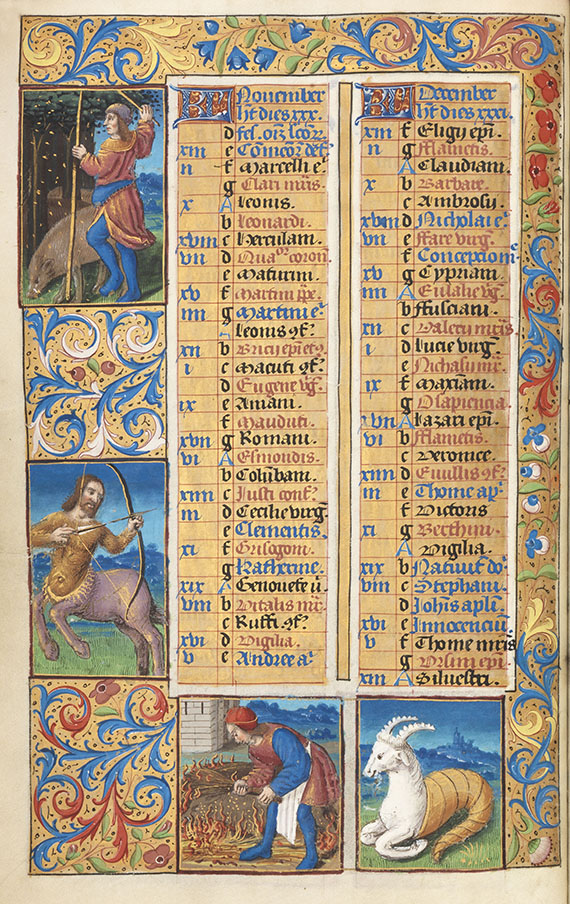 KL Nouember
ht dies xxx.
d fes. oiz scoz.
xiii e Comicor def
ii f Marcelli eͥ
g Clari mris.
x A Leonis.
b Leonardi.
xviii c herculani.
vii d Quatͦ coron.
e Maturini.
xv f Martini pp.
iiii g Martini eͥ
Leonis 9f.
xii b Bricy epi et 9
i c Macuti 9f.
d Eugene vg.
ix e Amani.
f Mauduti.
xvii g Romani.
vi A Esmondis.
b Columbani.
xiiii c Justi conf.
iii d Cecilie virg
e Clementis.
xi f Grisogoni.
g Katherine.
xix A Genouefe
viii b Vitalis mr.
c Ruffi 9f.
xvi d Vigilia.
v e Andree aͥ.
KL December
ht dies xxxi.
xiii f Eligij epi.
ii g fflamctis.
A Claudiani.
x b Barbare.
c Ambrosij.
xviii d Nicholai eͥ
vii e ffare virg.
f Conception
xv g Cypriani.
iiii A Eulalie vg
b ffusciani.
xii c Valerij mris.
i d Lucie virg
e Nichasij mr.
ix f Maxiani.
g O sapiencia.
xvii A Lazari epi.
vi b fflamctis.
c Veronice.
xiiii d Eusllis 9f.
iii e Thome ap
f Victoris
xi g Bercthini.
A Vigilia.
xix b Natiuit do
viii c Stephani.
d Johis aple.
xvi e Innocenciu
v f Thome mris
g Ursini epi.
xiii A Siluestri.